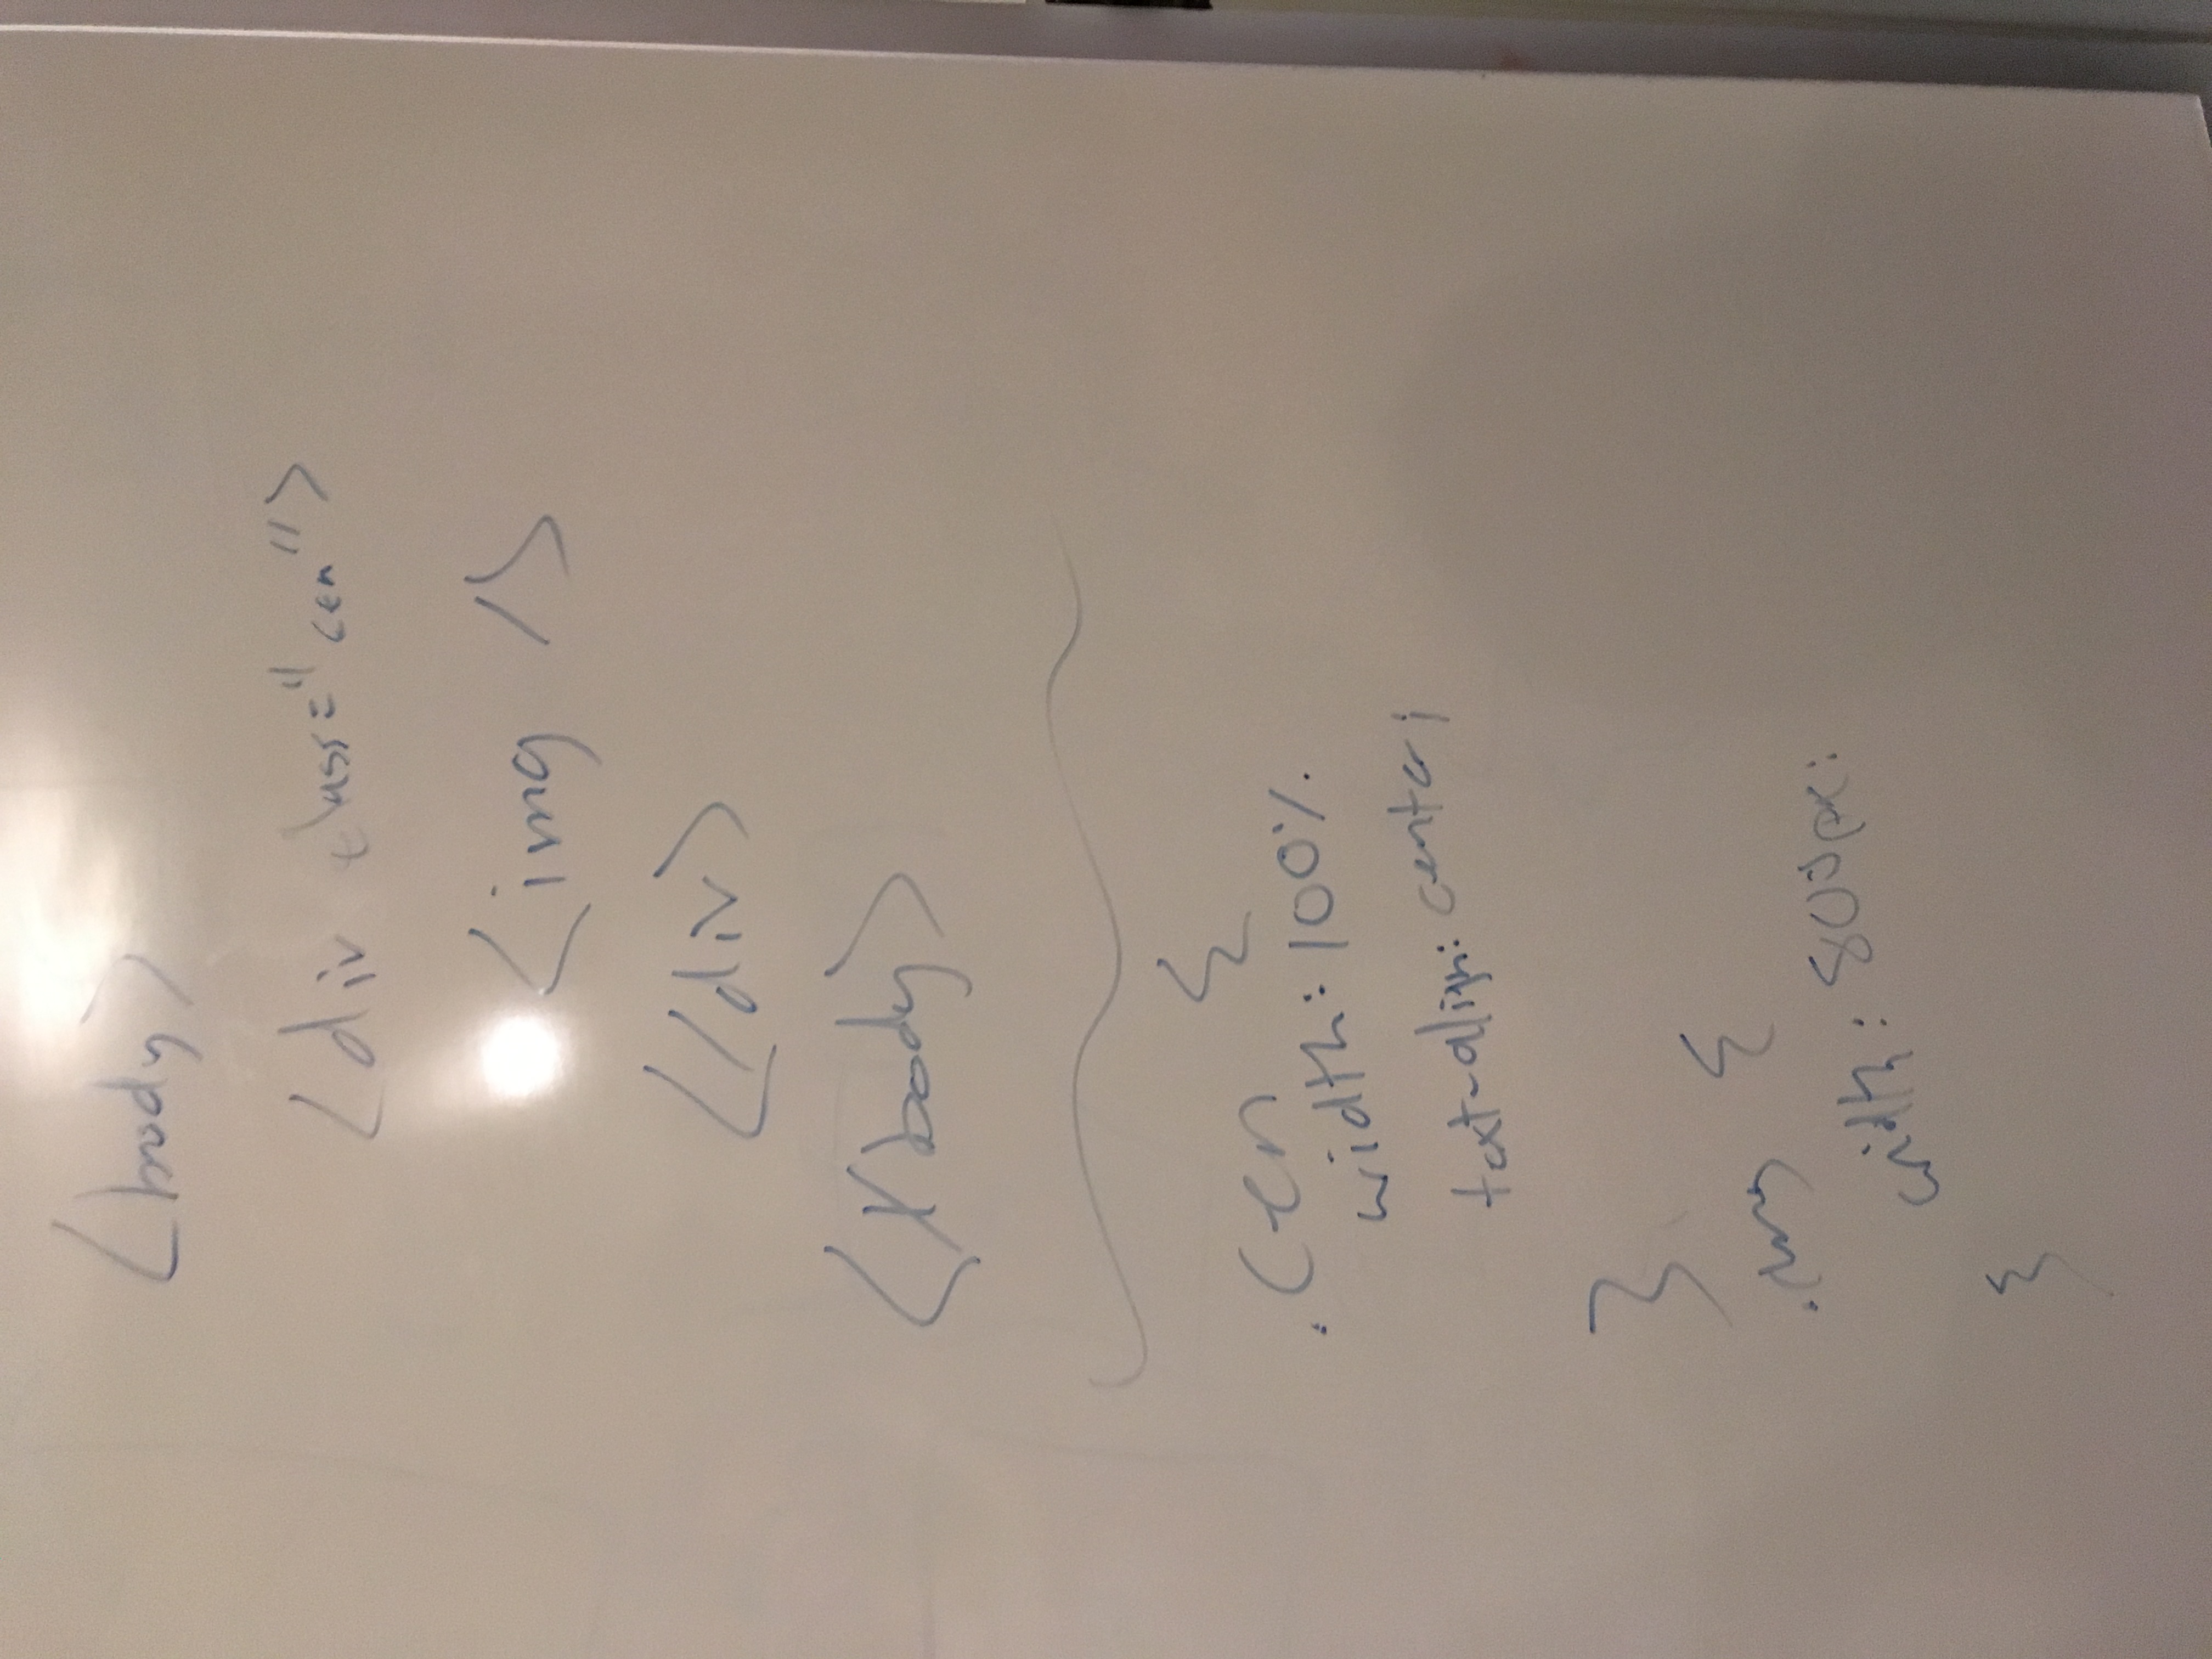 <body>
<div class="cen">
<img />
</div>
</body>
.cen {
width: 100%.
text-align: center;
}
.img {
width: 800px;
}